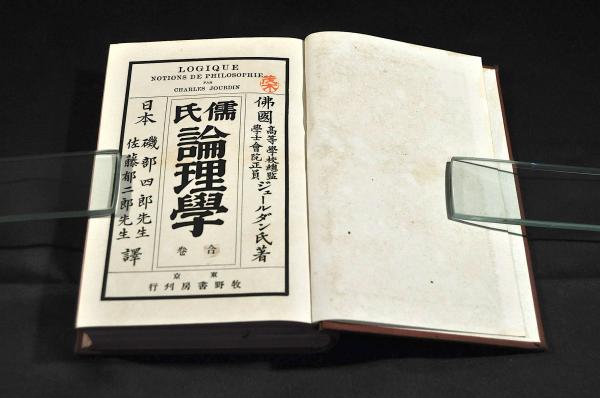 LOGIQUE
NOTIONS DE PHILOSOPHIE
PAR
CHARLES JOURDIN
佛國
高等學校總監
學士會院正員
ジュールダン氏著
儒氏
論理學
合卷
日本
磯部四郎先生
佐藤郁二郎先生
譯
東京
牧野書房刋行